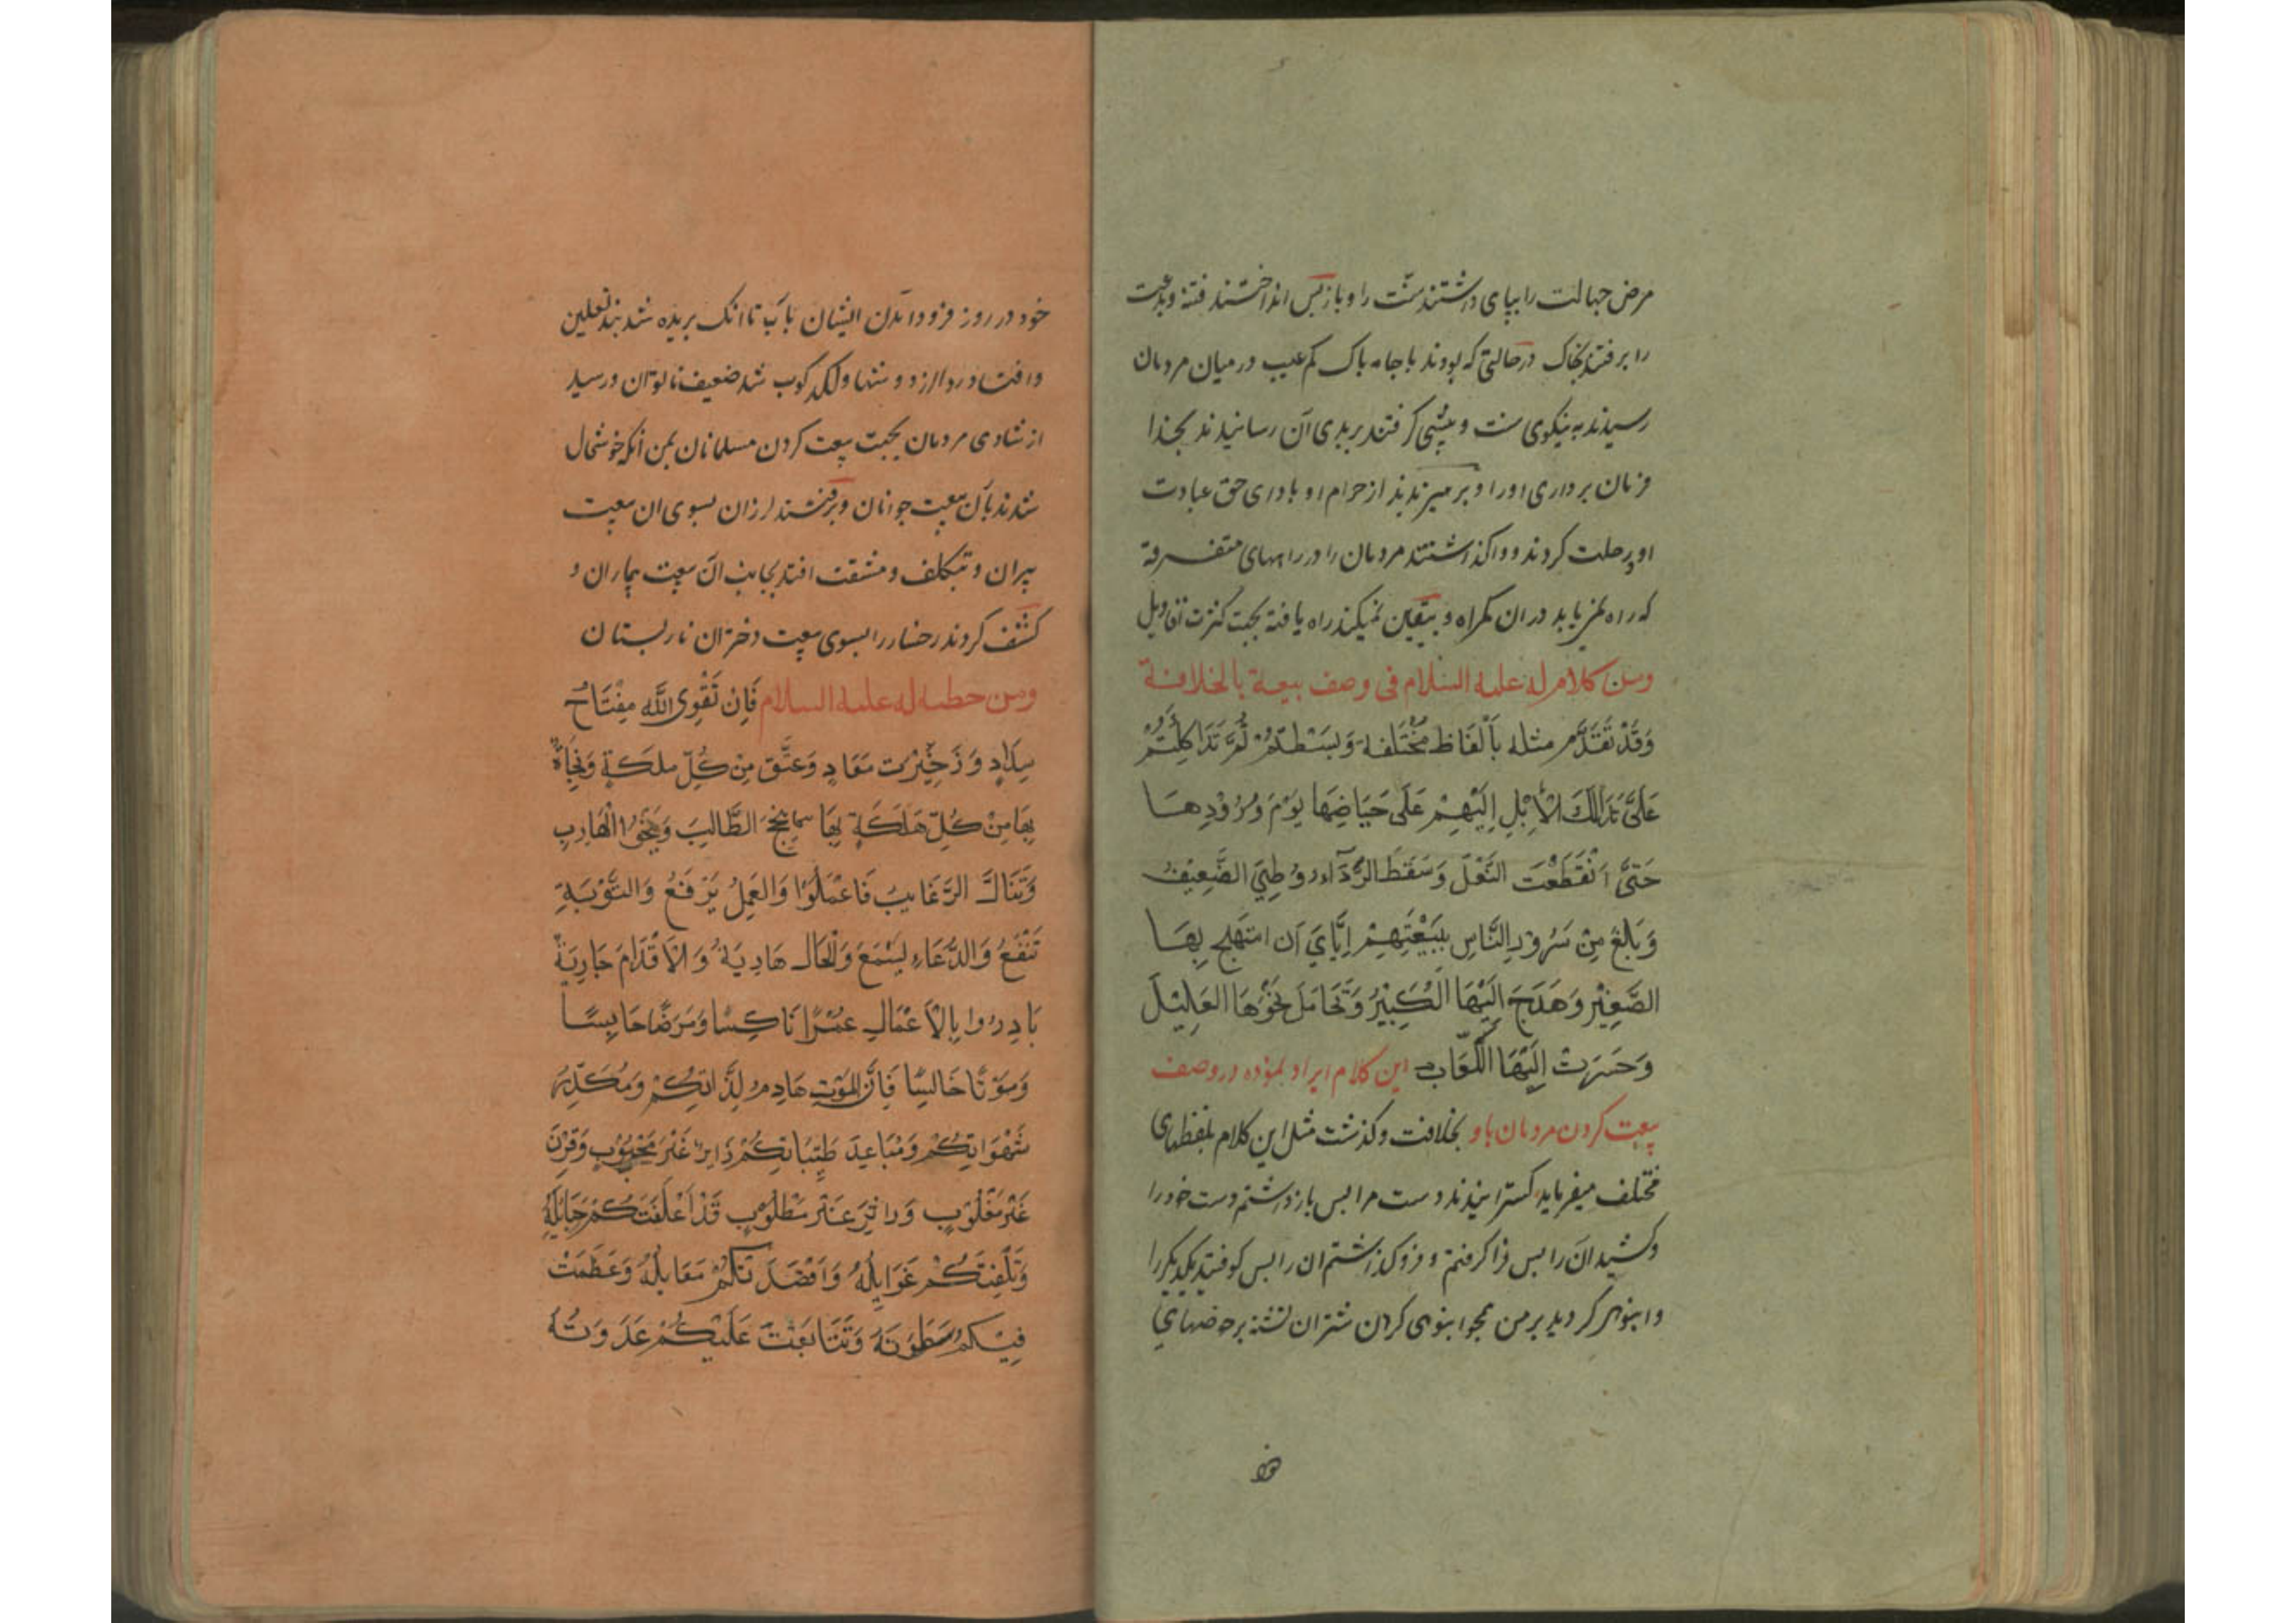 مرض جهالت را بپای داشتند سنّت را و باز پس انداختند فتنه و بدعت
را برفتند بخاک در حالتی که بودند با جامه پاک کم عیب در میان مردمان
رسیدند به نیکوی سنت و پیشی گرفتند بر بدی آن رسانیدند بخدا
فرمان برداری او را و پرهیزیدند از حرام او بادای حق عبادت
او رحلت کردند و واکذاشتند مردمان را در راههای متفرقة
که راه نمی یابد در ان کمراه و بیقین نمیکند راه یافته بجهت کثرت تفاویل
ومن كلام له عليه السلام فى وصف بيعة بالخلافة
وَقَدْ تَقَدَّم مثله بأَلْفَاظ مُخْتَلفة وَبَسَطْتُمْ ثُمَّ تَدَاكَكْتُمْ
عَلَيَّ تَدَاكَّ الْأِبْلِ الَيْهِمْ عَلَى حَيَاضِهَا يَوْمَ وُرُوْدِهَا
حَتَّى انْقَطَعْت النَّعْل وَسَقَطَ الرِّدَآء وَوُطِئَ الضَّعِيْفُ
وَبَلَغ مِنْ سُرُوْرِ النَّاسِ بِبَيْعَتِهِمْ اِيَّايَ اَن ابتَهَج بِهَا
الصَّغِيْر وَهَدَجَ الَيْهَا الْكَبِيْرُ وَتَحَامَلَ نَحْوَهَا الْعَلِيْلَ
وَحَسَرَتْ الَيْهَا الْكَعَاب این کلام ایراد نموده در وصف
بیعت کردن مردمان باو بخلافت و کذشت مثل این کلام بلفظهای
مختلف میفرماید کسترانیدند دست مرا پس باز داشتم دست خود را
و کشیدان را پس فرا کرفتم و فرو کذاشتم ان را پس کوفتید یکدیکر را
و انبوهی کردید بر من همچو انبوهی کردن شتران تشنه بر حوضهای
خود
خود در روز فرود آمدن ایشان بآب تا انک بریده شد بند نعلین
و افتاد ردا از دوشها و لکد کوب شد ضعیف ناتوان و رسید
از شادی مردمان بجهت بیعت کردن مسلمانان بمن آنکه خوشحال
شدند بآن بیعت جوانان و برفتند لرزان بسوی ان بیعت
پیران و بتکلف و مشقت افتد بجانب آن بیعت بیماران و
کشف کردند رخسار را بسوی بیعت دختران نارپستان
ومن خطبه له عليه السلام فَاِنَّ تَقْوَى اللَّه مِفْتَاحُ
سِدَادٍ وَذَخِيْرَت مَعَادٍ وَعَتَّق مِنْ كُلِّ ملَكَةٍ وَنَجَاةٌ
بِهَا مِنْ كُلِّ هَلَكَةٍ بِهَا ينجح الطَّالِبَ وَيَنْجُوا الْهَارِب
وَتنَالُ الرَّغَايبُ فَاعْمَلُوْا وَالعَمِلُ يَرْفَعُ وَالتَّوْبَةِ
تَنْفَعُ وَالدُّعَاءِ يُسْمَعَ وَالْحَال هَادِيَةٌ وَالْاَقْدَامَ جَارِيَةٌ
بَادِرُوا بِالْاَعْمَالِ عُمُرًا نَاكِسًا وَمَرَضًا حَابِسًا
وَمَوْتًا خَالسًا فَاِنَّ الْمَوْت هَادِمُ لِذَّاتِكُمْ وَمُكَدِّرُ
شَهْوَاتِكُمْ وَمُبَاعِدَ طَيِّبَاتِكُمْ زَايرٌ غَيْرَ مَحْبُوْبٍ وَقِرْنَ
غَيْرَ مَغْلُوبٍ وَوَاتِرَ غَيْر مَطْلُوْبٍ قَدْ اَعْلَقَتْكُمْ حَبَايلُهُ
وَتَكَنَّفَتْكُمْ غَوَايِلُهُ وَاَقْصَدَتْكُمْ مَعَابلُهُ وَعَظُمَتْ
فِيْكُمْ سَطْوَتَهُ وَتَتَابَعَتْ عَلَيْكُمْ عَدَوَتُهُ